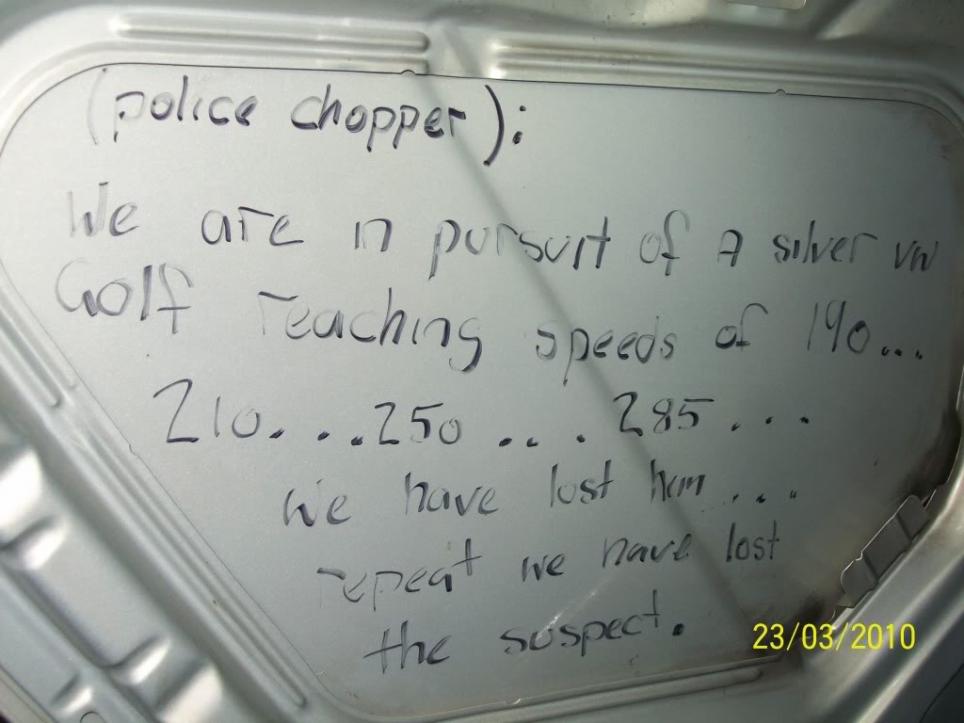 (police chopper):
We are in pursuit of A silver vw
Golf reaching speeds of 190...
210...250 .... 285...
we have lost him....
repeat we have lost
the suspect.
23/03/2010